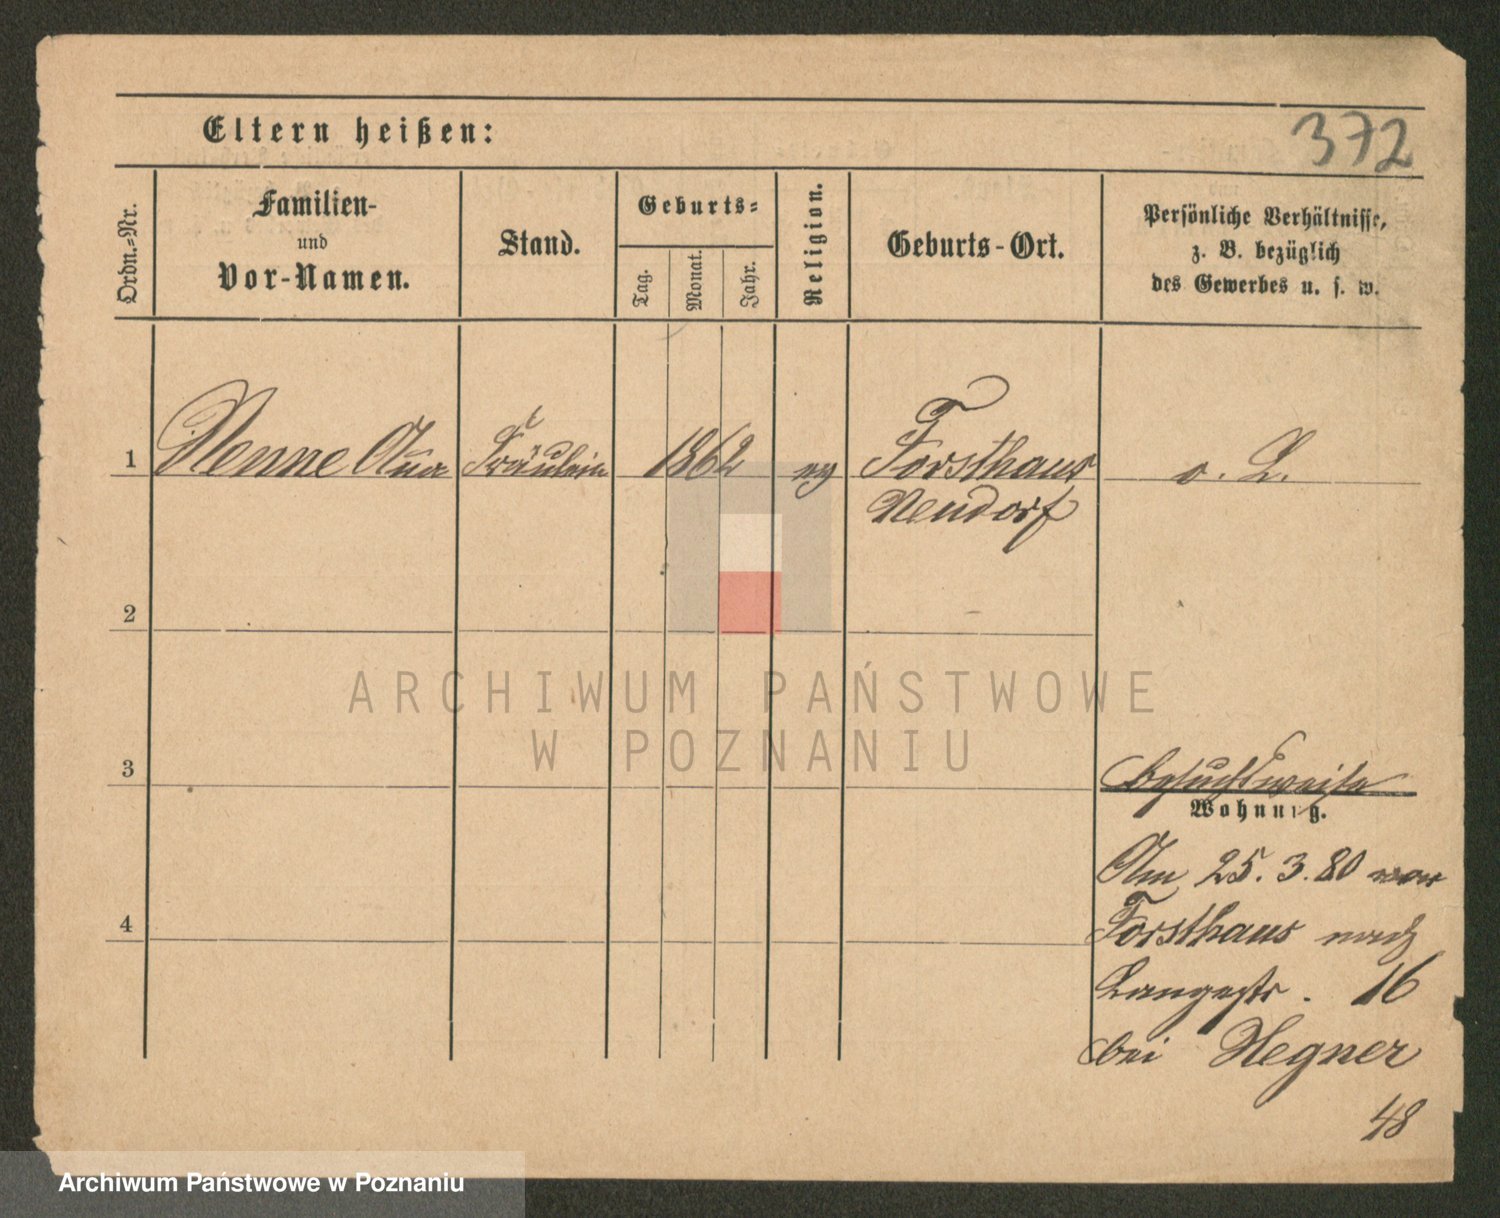 Eltern heißen:
372
Ordn.=Nr.
Familien-
und
Vor-Namen.
Stand.
Geburts=
Tag.
Monat.
Jahr.
Religion.
Geburts-Ort.
Persönliche Verhältnisse,
z. B. bezüglich
des Gewerbes u. s. w.
1 Nenne Fräulein 1862 Forsthaus
Neudorf
2
ARCHIWUM PAŃSTWOWE
W POZNANIU
3
besuchsweise
Wohnung.
Am 25. 3. 80 von
4
Forsthaus nach
Langestr. 16
bei Hegner
48
Archiwum Państwowe w Poznaniu